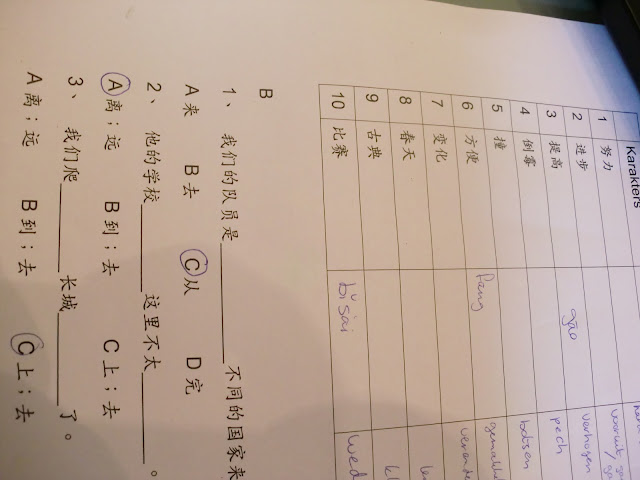 Karakters
1 努力
2 进步 vooruit
3 提高 gāo verhogen
4 倒霉 pech
5 撞 botsen
6 方便 fang gemakkel
7 变化 verande
8 春天
9 古典 kl
10 比赛 bǐsài wed
B
1、 我们的队员是________不同的国家来
A 来 B 去 C 从 D 完
2、 他的学校________这里不太________。
A 离；远 B 到；去 C 上；去
3、 我们爬________长城________了。
A 离；远 B 到；去 C 上；去